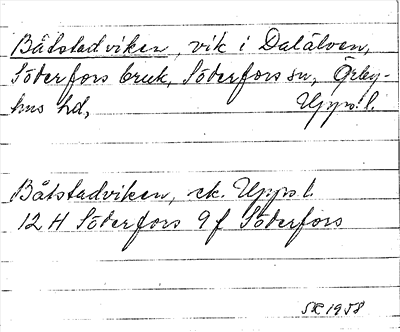 Båtstadviken, vik i Dalälven,
Söderfors bruk, Söderfors sn, Örby-
hus hd, Upps. l.
Båtstadviken, ek. Upps l.
12 H Söderfors 9 f Söderfors
SR 1958